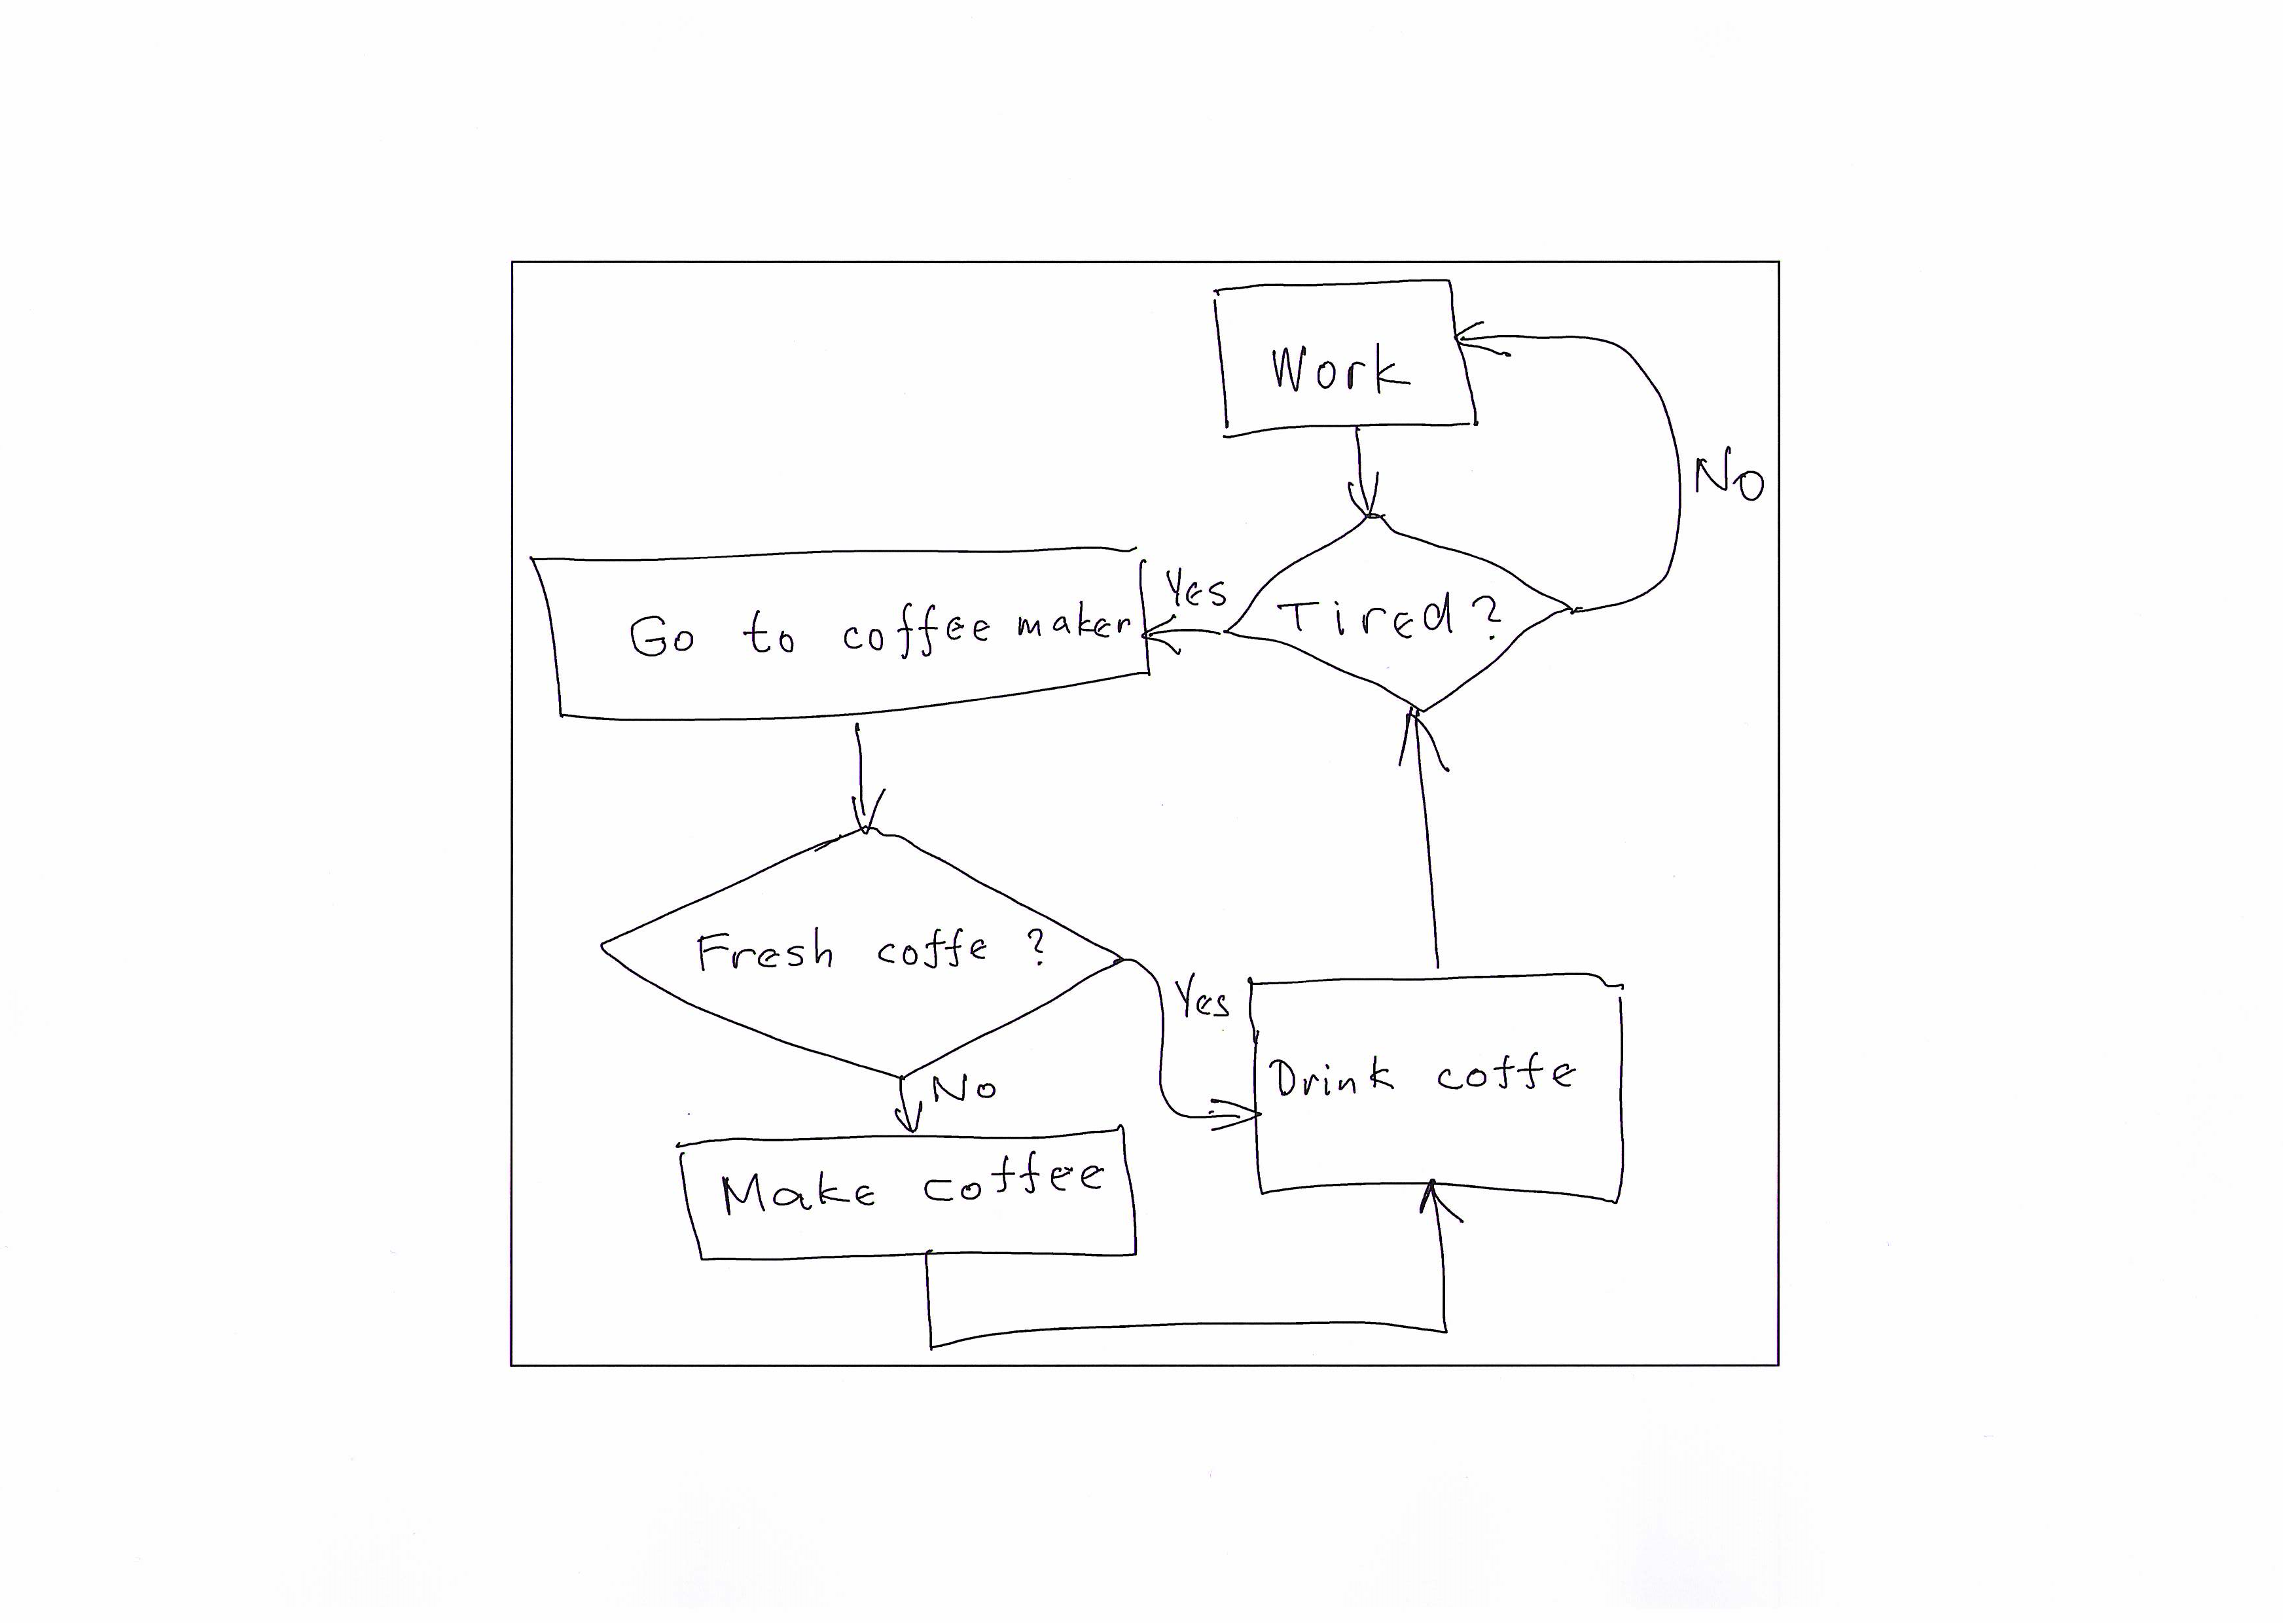 Work
No
Tired?
Yes
Go to coffee maker
Fresh coffe ?
Yes
No
Drink coffe
Make coffee